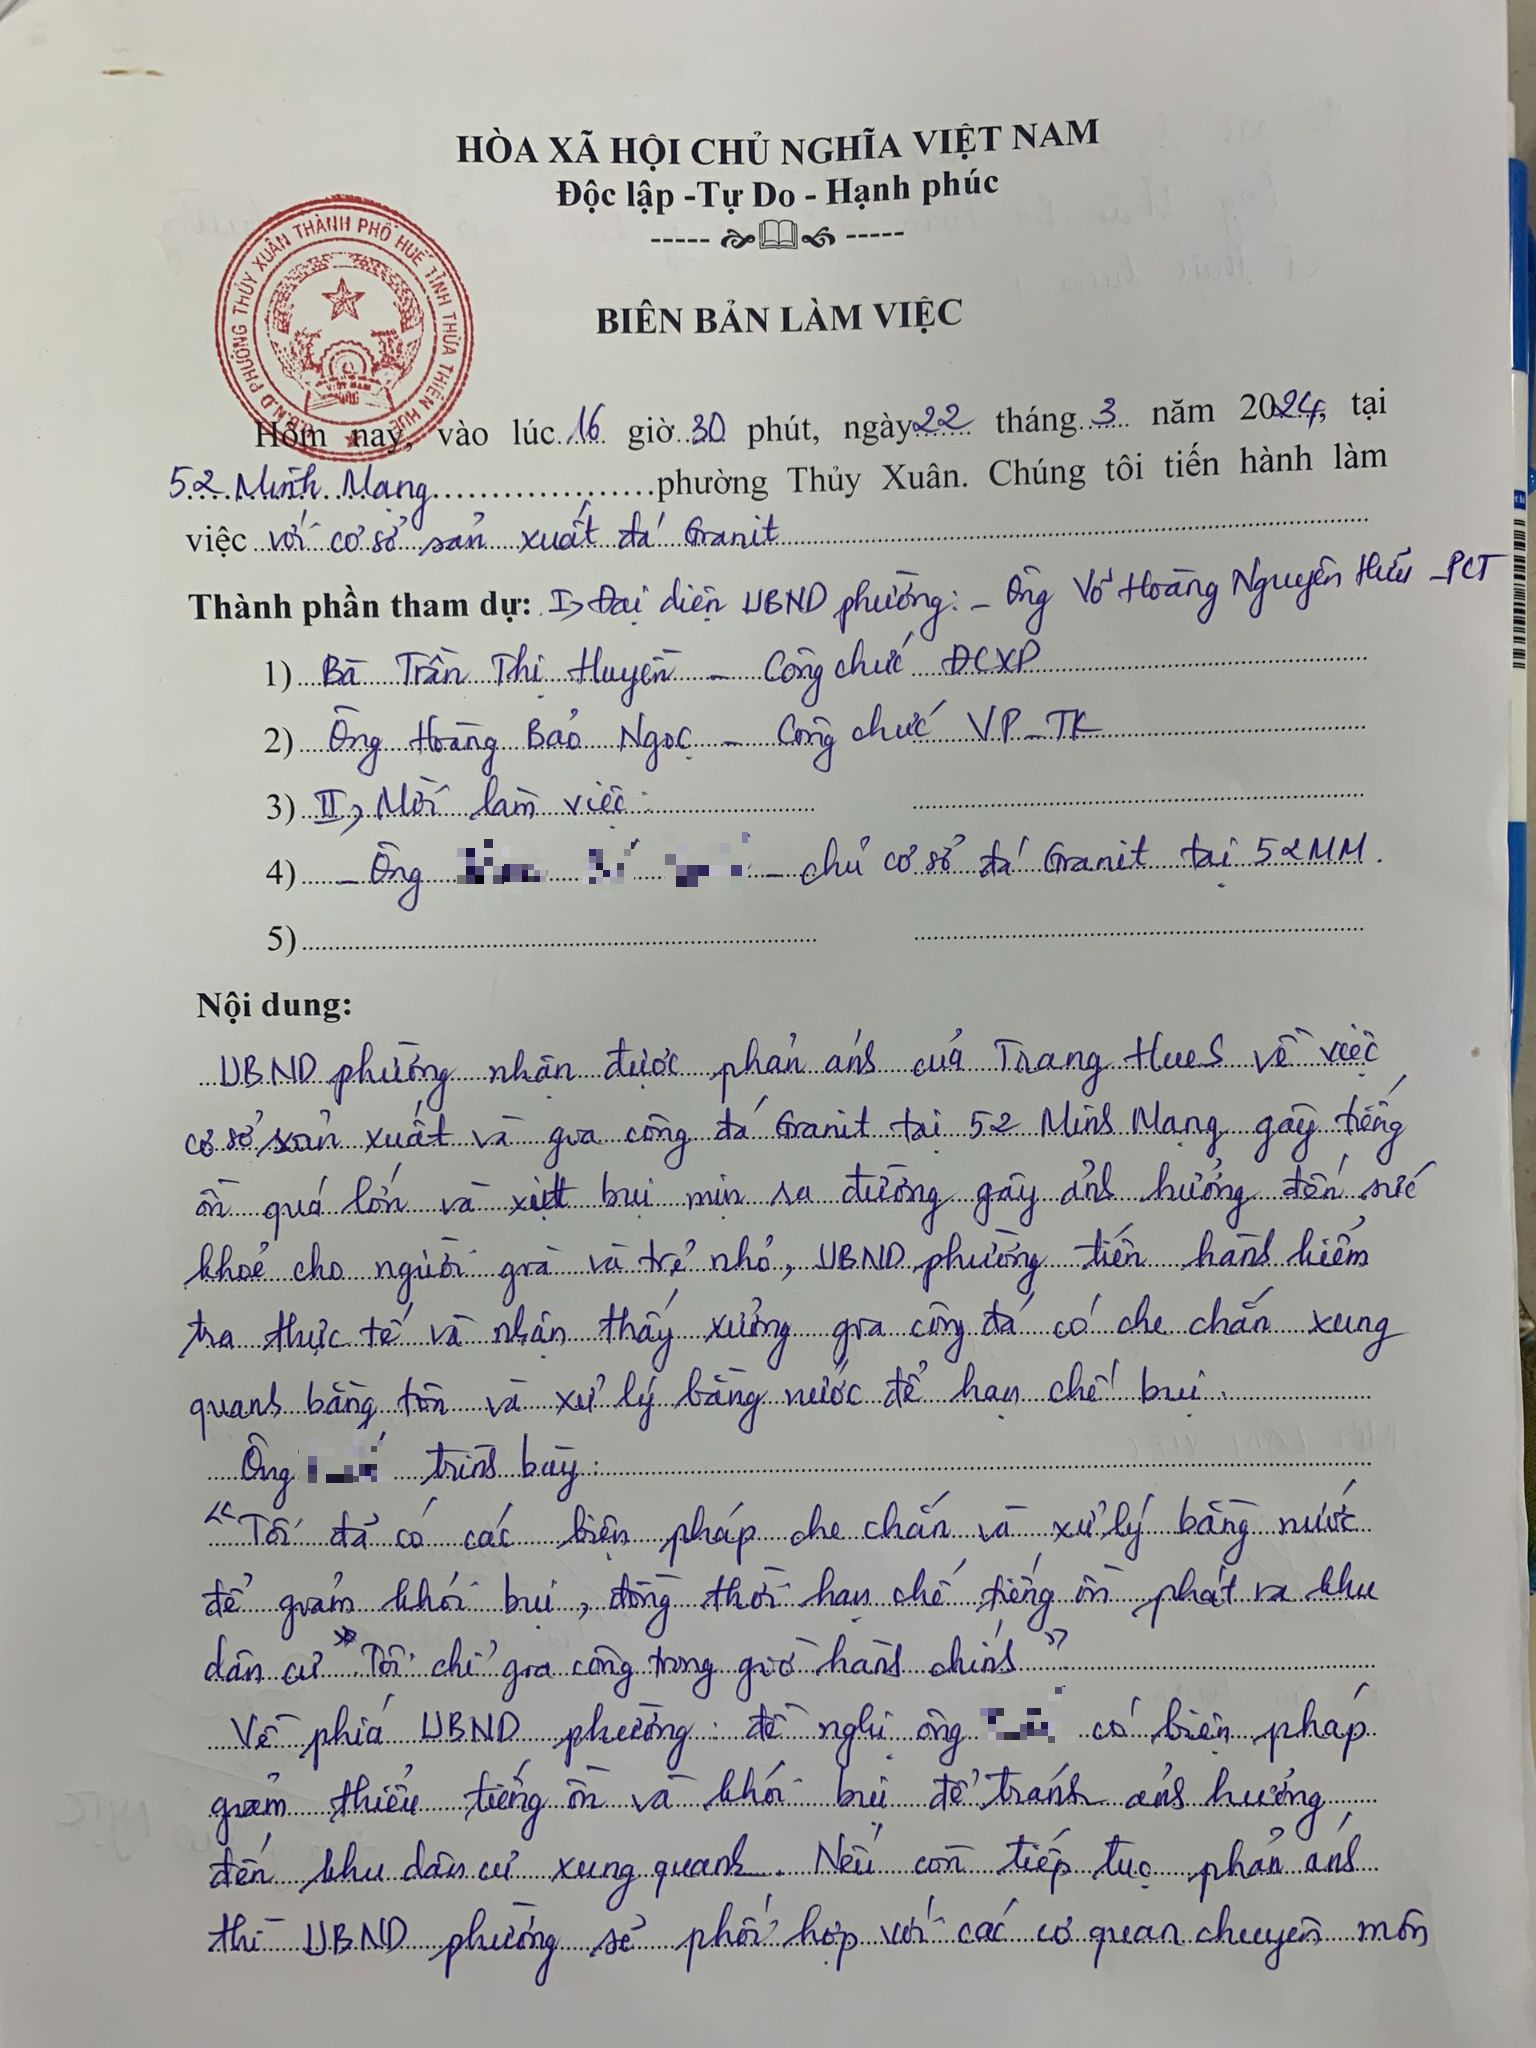 HÒA XÃ HỘI CHỦ NGHĨA VIỆT NAM
Độc lập -Tự Do - Hạnh phúc
U.B.N.D PHƯỜNG THỦY XUÂN THÀNH PHỐ HUẾ TỈNH THỪA THIÊN HUẾ
VIỆT NAM
BIÊN BẢN LÀM VIỆC
Hôm nay, vào lúc 16 giờ 30 phút, ngày 22 tháng 3 năm 2024, tại
52 Minh Mạng phường Thủy Xuân. Chúng tôi tiến hành làm
việc với cơ sở sản xuất đá Granit
Thành phần tham dự: I, Đại diện UBND phường: - Ông Võ Hoàng Nguyên Hữu - PCT
1) Bà Trần Thị Huyền - Công chức ĐCXD
2) Ông Hoàng Bảo Ngọc - Công chức VP-TK
3) II, Mời làm việc:
4) - Ông - chủ cơ sở đá Granit tại 52 MM.
5)
Nội dung:
UBND phường nhận được phản ánh của Trang HueS về việc
cơ sở sản xuất và gia công đá Granit tại 52 Minh Mạng gây tiếng
ồn quá lớn và bụi mịn ra đường gây ảnh hưởng đến sức
khoẻ cho người già và trẻ nhỏ, UBND phường tiến hành kiểm
tra thực tế và nhận thấy xưởng gia công đá có che chắn xung
quanh bằng tôn và xử lý bằng nước để hạn chế bụi.
Ông trình bày:
"Tôi đã có các biện pháp che chắn và xử lý bằng nước
để giảm khói bụi, đồng thời hạn chế tiếng ồn phát ra khu
dân cư" Tôi chỉ gia công trong giờ hành chính"
Về phía UBND phường: đề nghị ông có biện pháp
giảm thiểu tiếng ồn và khói bụi để tránh ảnh hưởng
đến khu dân cư xung quanh. Nếu còn tiếp tục phản ánh
thì UBND phường sẽ phối hợp với các cơ quan chuyên môn